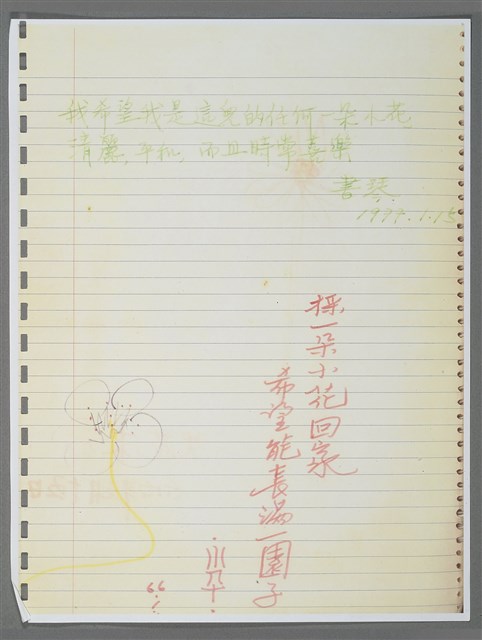 我希望我是這兒的任何一朵小花
清麗,平凡,而且時常喜樂
書琴
1977.1.15
採一朵小花回家
希望能長滿一園子